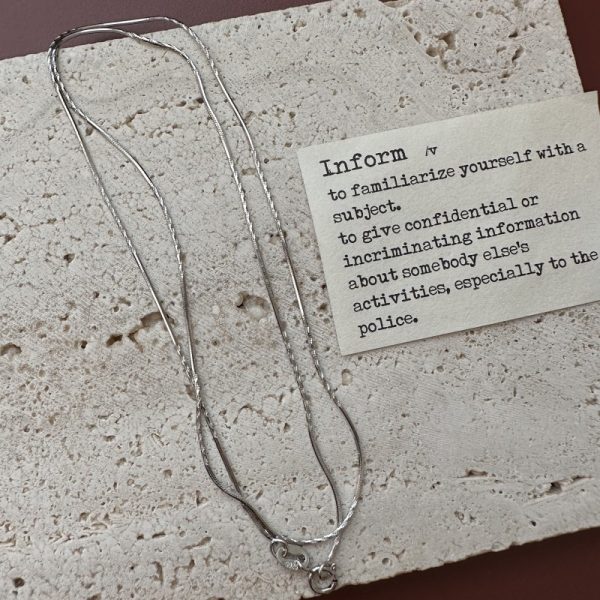 Inform /v
to familiarize yourself with a
subject.
to give confidential or
incriminating information
about somebody else's
activities, especially to the
police.